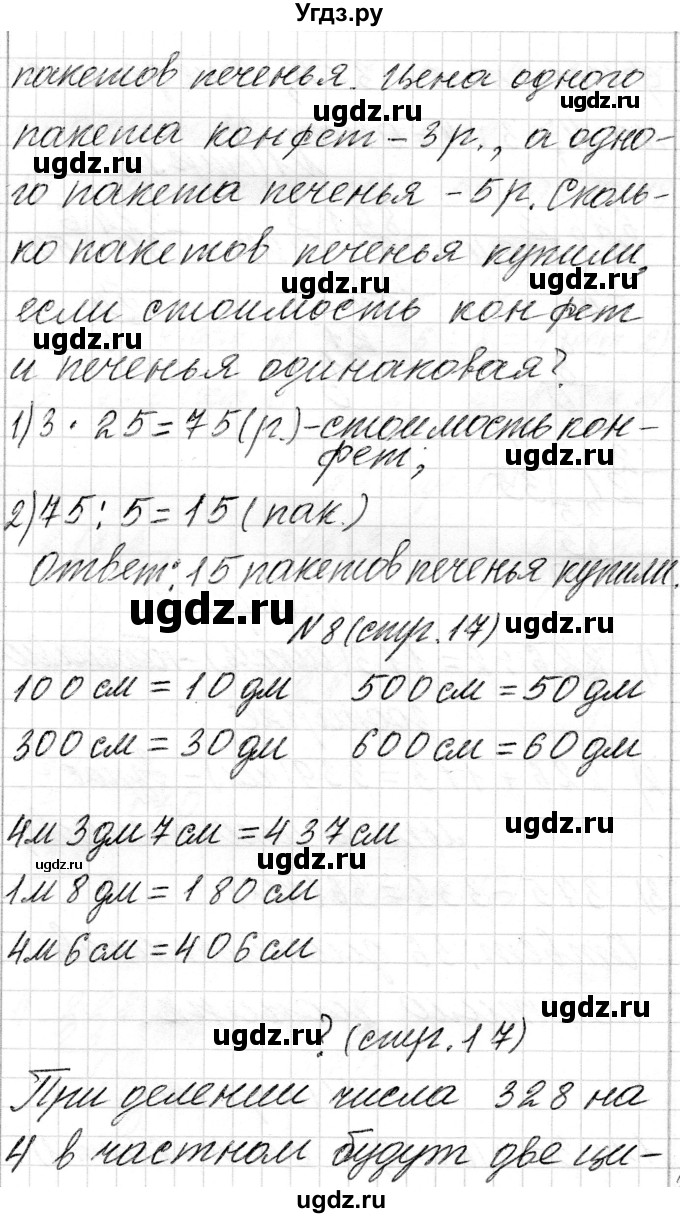 Угдз.ру
пакетов печенья. Цена одного
ugdz.ru ugdz.ru
пакета конфет – 3 р., а одно-
ugdz.ru ugdz.ru
го пакета печенья – 5 р. Сколь-
ко пакетов печенья купили,
ugdz.ru ugdz.ru
если стоимость конфет
ugdz.ru
и печенья одинаковая?
1) 3 · 25 = 75 (р.) – стоимость кон-
фет; ugdz.ru
2) 75 : 5 = 15 (пак.)
Ответ: 15 пакетов печенья купили.
ugdz.ru ugdz.ru
N 8 (стр. 17)
100 см = 10 дм 500 см = 50 дм
300 см = 30 дм 600 см = 60 дм
4м 3дм 7см = 437см ugdz.ru
ugdz.ru ugdz.ru
1м 8дм = 180см
4м 6см = 406см
ugdz.ru ugdz.ru
? (стр. 17)
При делении числа 328 на
4 в частном будут две ци-
ugdz.ru